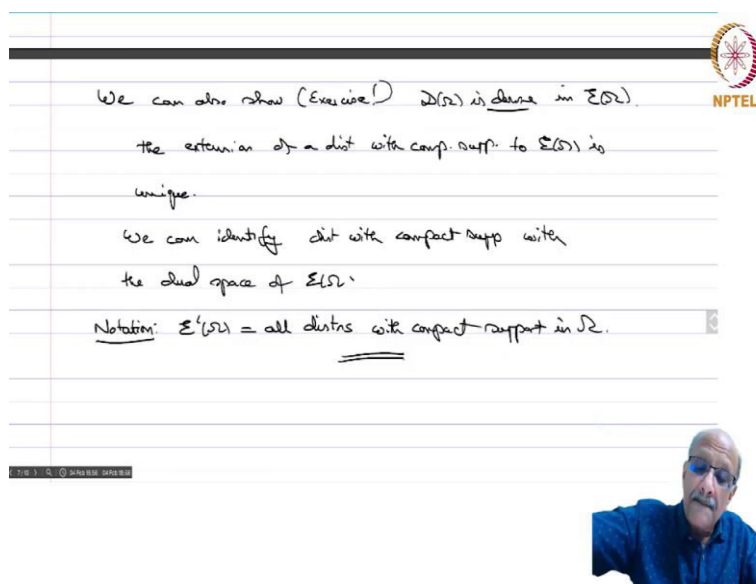 We can also show (Exercise!) D(Ω) is dense in Ɛ(Ω).
NPTEL
the extension of a dist with comp. supp. to Ɛ(Ω) is
unique.
We can identify dist with compact supp with
the dual space of Ɛ(Ω.
Notation: Ɛ'(Ω) = all distns with compact support in Ω.
7/10
04 Feb 16:56 04 Feb 16:56